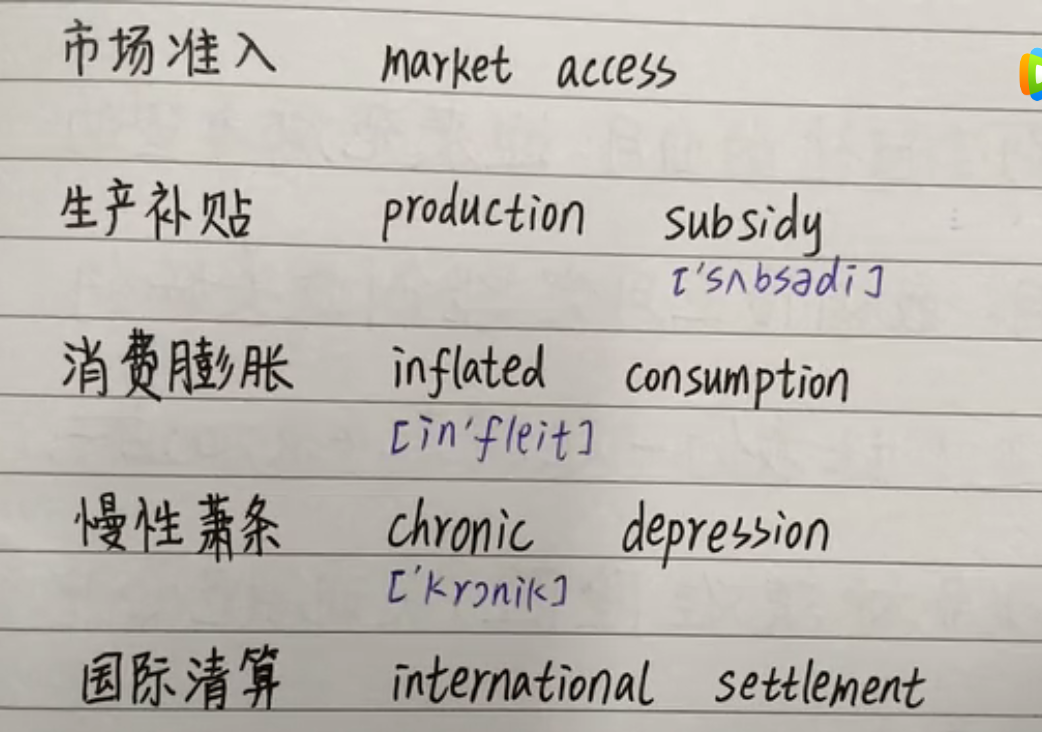 市场准入 market access
生产补贴 production subsidy
['sʌbsədi]
消费膨胀 inflated consumption
[in'fleit]
慢性萧条 chronic depression
['krɔnik]
国际清算 international settlement